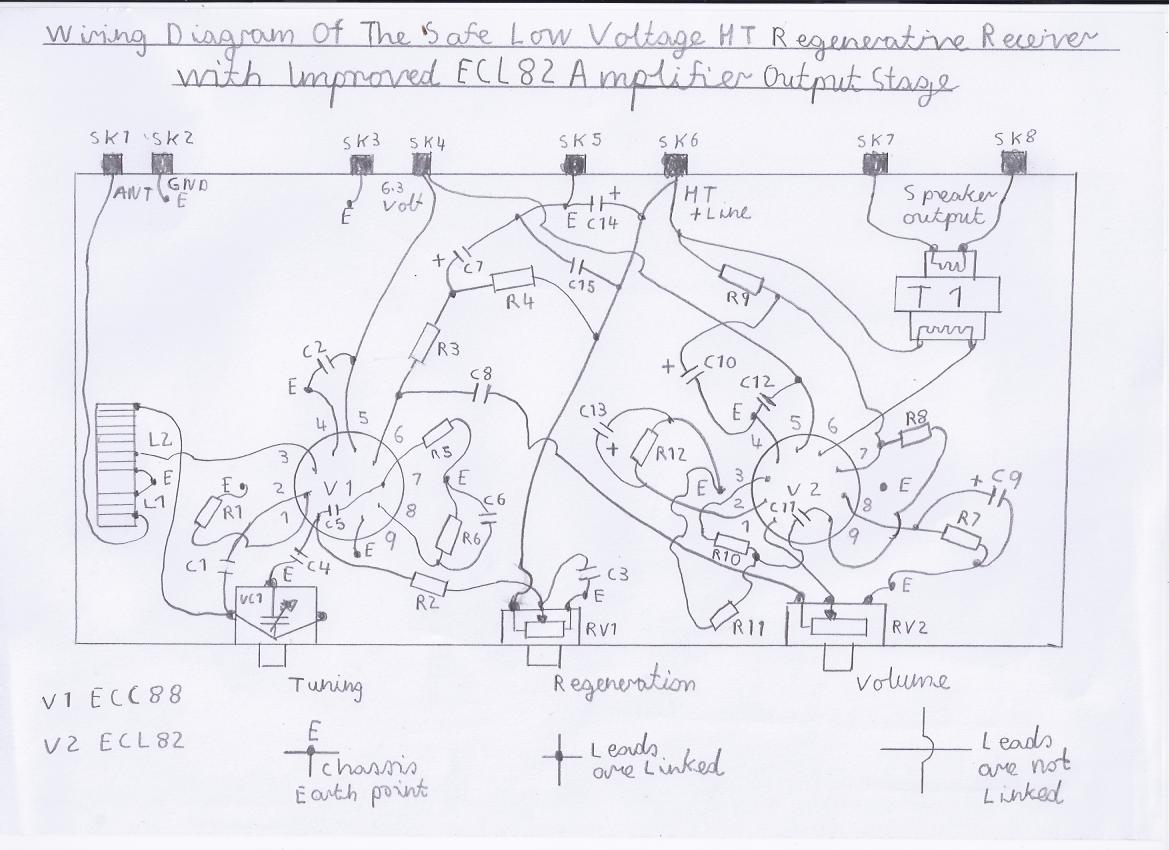 Wiring Diagram Of The Safe Low Voltage HT Regenerative Receiver
with Improved ECL82 Amplifier Output Stage
SK1 SK2 SK3 SK4 SK5 SK6 SK7 SK8
ANT
GND
E
E
6.3
Volt
E
+
C14
HT
+Line
Speaker
output
+
C7
C15
R4
R9
T1
R3
C2
E
C8
+
C10
C12
E
4
5
6
4
5
6
C13
+
R12
R8
L2
E
L1
3
2
1
V1
C5
7
8
9
R5
E
C6
R6
E
R1
E
3
2
1
V2
C11
7
8
9
E
E
+
C9
R7
C1
C4
E
VC1
R2
C3
E
RV1
R10
R11
E
RV2
Tuning
Regeneration
Volume
V1 ECC88
V2 ECL82
E
chassis
Earth point
Leads
are Linked
Leads
are not
Linked